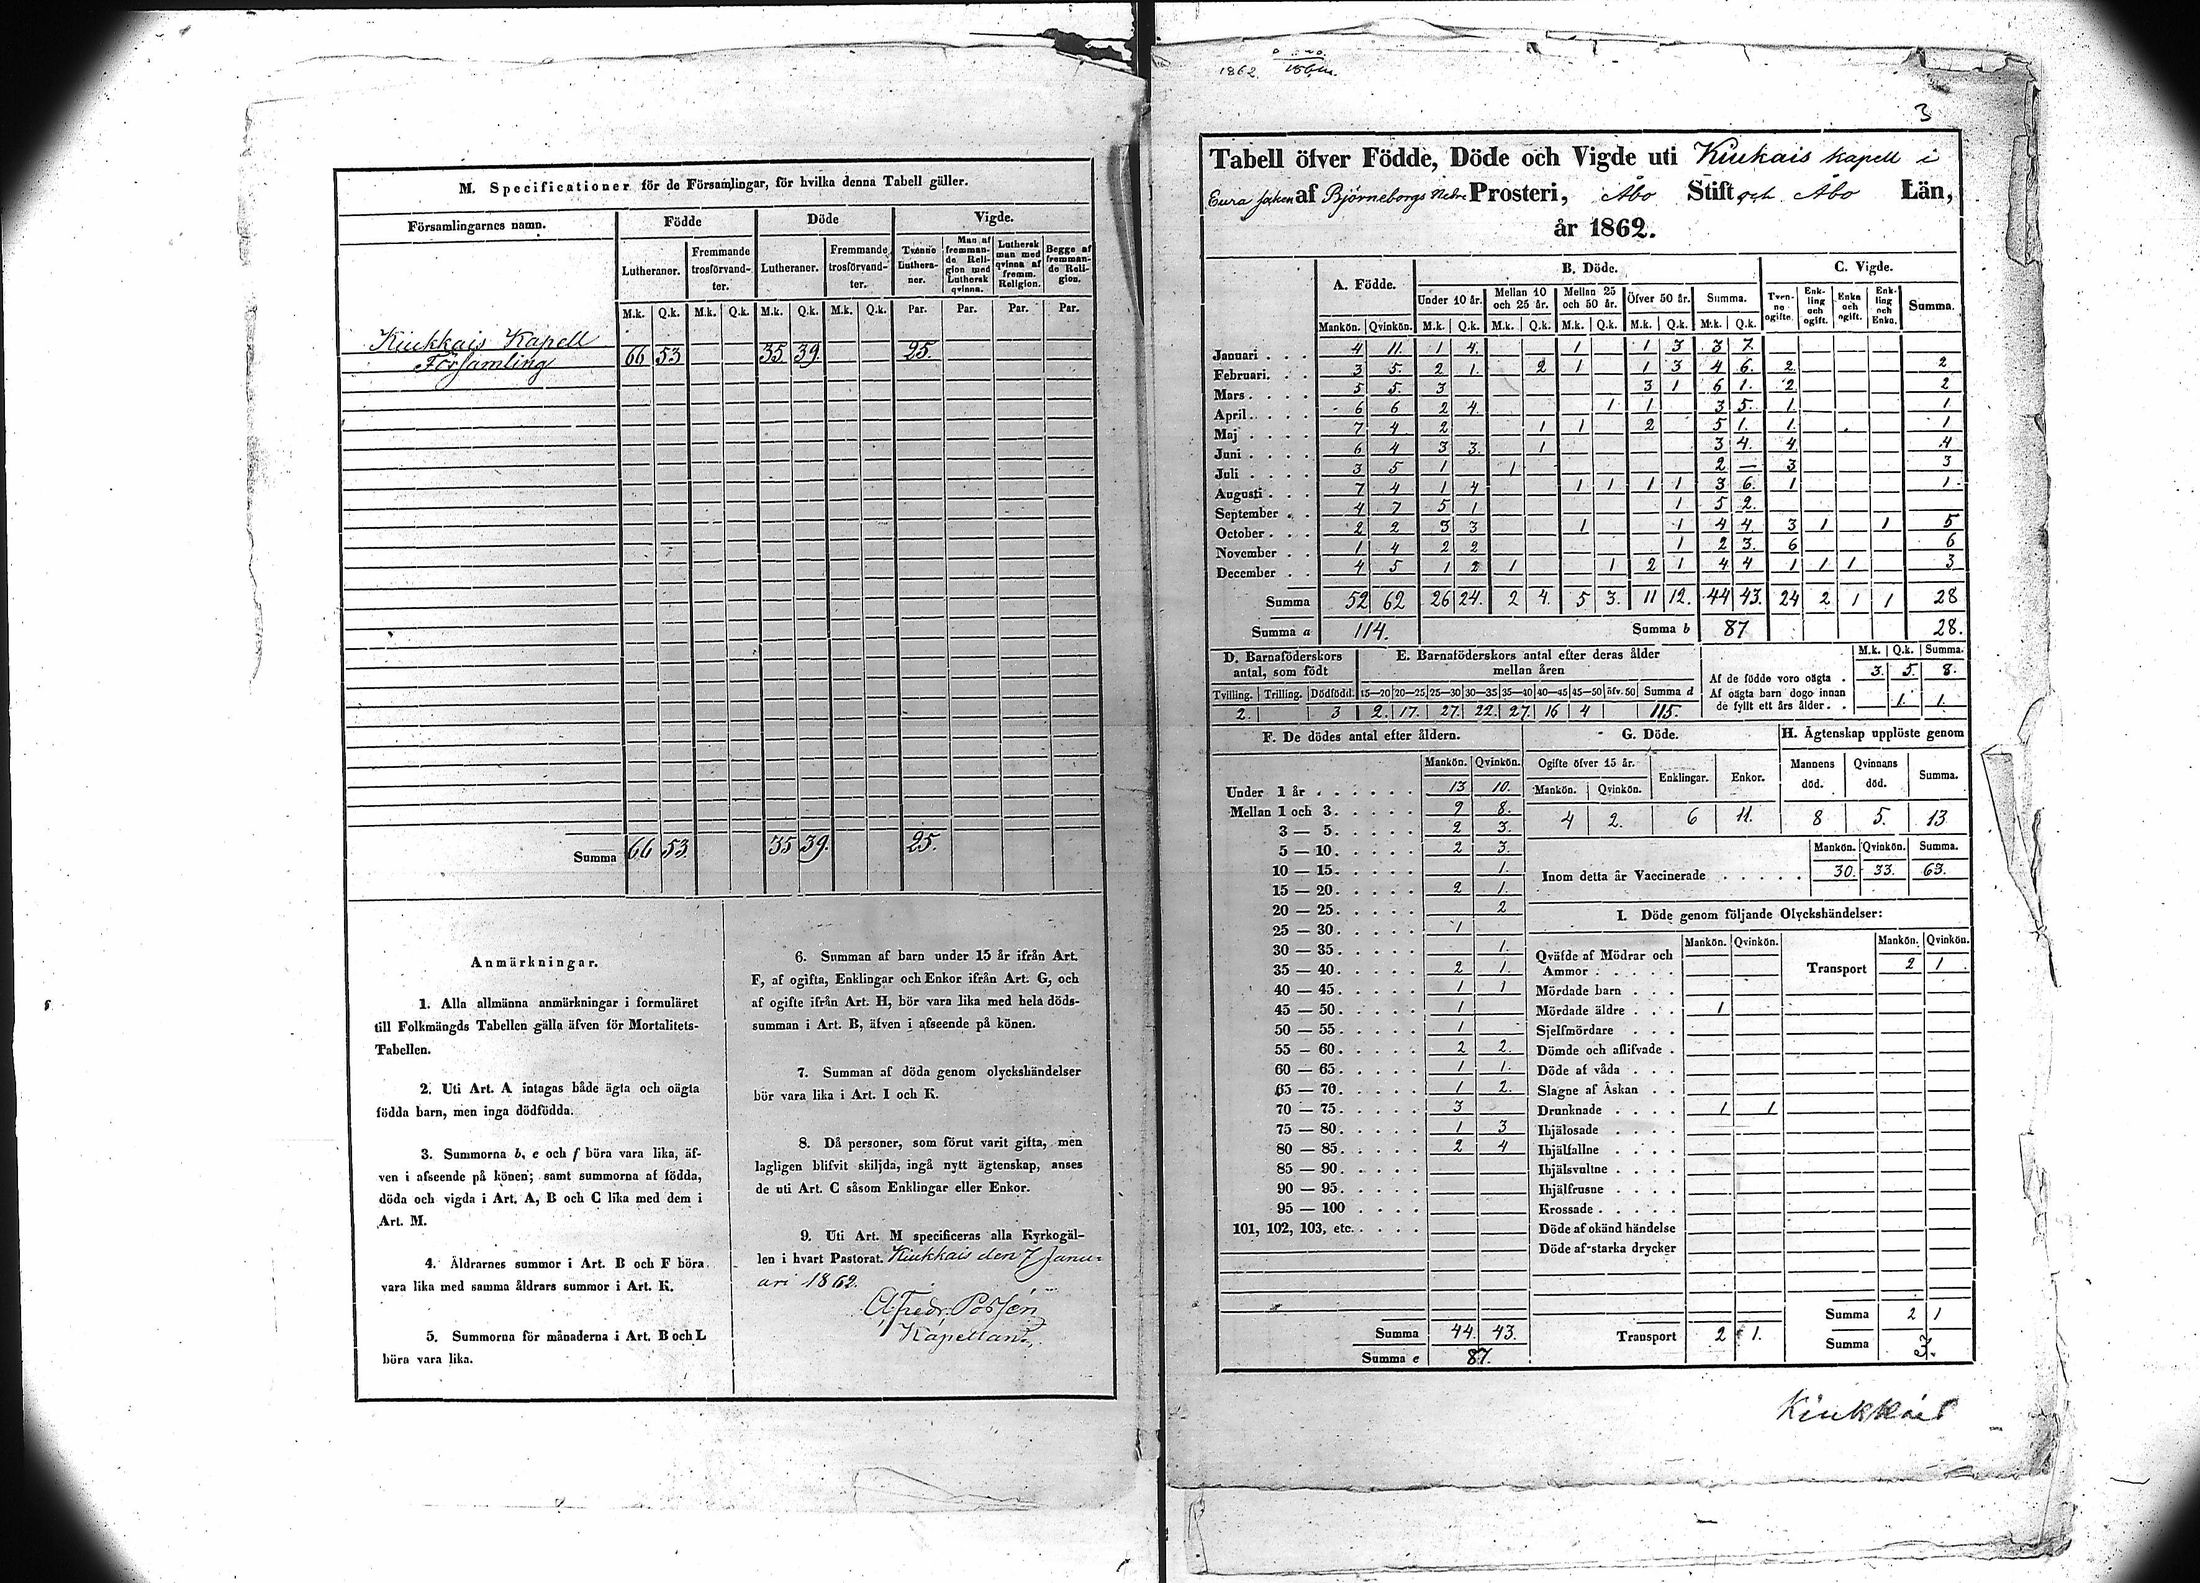 M. Specificationer för de Församlingar, för hvilka denna Tabell gäller.
Församlingarnes namn. Födde Döde Vigde.
Lutheraner. Fremmande trosförvandter. Lutheraner. Fremmande trosförvandter. Tvänne Lutheraner. Man af fremmande Religion med Luthersk qvinna. Luthersk man med qvinna af fremm. Religion. Begge af fremmande Religion.
M.k. Q.k. M.k. Q.k. M.k. Q.k. M.k. Q.k. Par. Par. Par. Par.
Kiukkais Kapell
Församling 66 53 35 39. 25.
Summa 66 53. 35 39. 25.
Anmärkningar.
1. Alla allmänna anmärkningar i formuläret
till Folkmängds Tabellen gälla äfven för Mortalitets-
Tabellen.
2. Uti Art. A intagas både ägta och oägta
födda barn, men inga dödfödda.
3. Summorna b, e och f böra vara lika, äf-
ven i afseende på könen; samt summorna af födda,
döda och vigda i Art. A, B och C lika med dem i
Art. M.
4. Åldrarnes summor i Art. B och F böra
vara lika med samma åldrars summor i Art. K.
5. Summorna för månaderna i Art. B och L
böra vara lika.
6. Summan af barn under 15 år ifrån Art.
F, af ogifta, Enklingar och Enkor ifrån Art. G, och
af ogifte ifrån Art. H, bör vara lika med hela döds-
summan i Art. B, äfven i afseende på könen.
7. Summan af döda genom olyckshändelser
bör vara lika i Art. I och K.
8. Då personer, som förut varit gifta, men
lagligen blifvit skiljda, ingå nytt ägtenskap, anses
de uti Art. C såsom Enklingar eller Enkor.
9. Uti Art. M specificeras alla Kyrkogäl-
len i hvart Pastorat. Kiukkais den 7 Janu-
ari 1862.
Kapellan.
1862
3
Tabell öfver Födde, Döde och Vigde uti Kiukais kapell i
Eura socken af Björneborgs Nedre Prosteri, Åbo Stift och Åbo Län,
år 1862.
A. Födde. B. Döde. C. Vigde.
Under 10 år. Mellan 10 och 25 år. Mellan 25 och 50 år. Öfver 50 år. Summa. Tvenne ogifte. Enkling och ogift. Enka och ogift. Enkling och Enka. Summa.
Mankön. Qvinkön. M.k. Q.k. M.k. Q.k. M.k. Q.k. M.k. Q.k. M.k. Q.k.
Januari . . . 4 11. 1 4. 1 1 3 3 7.
Februari. . . 3 5. 2 1. 2 1 1 3 4 6. 2. 2
Mars . . . . 5 5. 3 3 1 6 1. 2. 2
April . . . . 6 6 2 4. 1 1 3 5. 1. 1
Maj . . . . 7 4 2 1 1 2 5 1. 1. 1
Juni . . . . 6 4 3 3. 1 3 4. 4 4
Juli . . . . 3 5 1 1 2 — 3 3
Augusti . . . 7 4 1 4 1 1 1 1 3 6. 1 1
September . . 4 7 5 1 1 5 2.
October . . . 2 2 3 3 1 1 4 4 3 1 1 5
November . . 1 4 2 2 1 2 3. 6 6
December . . 4 5 1 2 1 1 2 1 4 4 1 1 1 3
Summa 52 62 26 24. 2 4. 5 3. 11 12. 44 43. 24 2 1 1 28
Summa a 114. Summa b 87 28.
D. Barnaföderskors antal, som födt E. Barnaföderskors antal efter deras ålder mellan åren M.k. Q.k. Summa.
Tvilling. Trilling. Dödfödd. 15—20 20—25 25—30 30—35 35—40 40—45 45—50 öfv. 50 Summa d
2. 3 2. 17. 27. 22. 27. 16 4 115.
Af de födde voro oägta . 3. 5. 8.
Af oägta barn dogo innan
de fyllt ett års ålder . . 1. 1.
F. De dödes antal efter åldern.
Mankön. Qvinkön.
Under 1 år . . . . . . 13 10.
Mellan 1 och 3. . . . . 9 8.
3 — 5. . . . . 2 3.
5 — 10. . . . . 2 3.
10 — 15. . . . . 1.
15 — 20. . . . . 2 1.
20 — 25. . . . . 2
25 — 30. . . . . 1
30 — 35. . . . . 1.
35 — 40. . . . . 2 1.
40 — 45. . . . . 1 1
45 — 50. . . . . 1
50 — 55. . . . . 1
55 — 60. . . . . 2 2.
60 — 65. . . . . 1 1.
65 — 70. . . . . 1 2.
70 — 75. . . . . 3
75 — 80. . . . . 1 3
80 — 85. . . . . 2 4
85 — 90. . . . .
90 — 95. . . . .
95 — 100 . . . .
101, 102, 103, etc. . . . .
Summa 44. 43.
Summa e 87.
G. Döde.
Ogifte öfver 15 år. Enklingar. Enkor.
Mankön. Qvinkön.
4 2. 6 11.
H. Ägtenskap upplöste genom
Mannens död. Qvinnans död. Summa.
8 5. 13
Mankön. Qvinkön. Summa.
Inom detta år Vaccinerade . . . . . 30. 33. 63.
I. Döde genom följande Olyckshändelser:
Mankön. Qvinkön. Mankön. Qvinkön.
Qväfde af Mödrar och
Ammor . . . . . Transport 2 1
Mördade barn . . .
Mördade äldre . . . 1
Sjelfmördare . . .
Dömde och aflifvade .
Döde af våda . . .
Slagne af Åskan . .
Drunknade . . . . 1 1
Ihjälosade . . . .
Ihjälfallne . . . .
Ihjälsvultne . . . .
Ihjälfrusne . . . .
Krossade . . . . .
Döde af okänd händelse
Döde af starka drycker
Summa 2 1
Transport 2 1. Summa 3.
Kiukkais